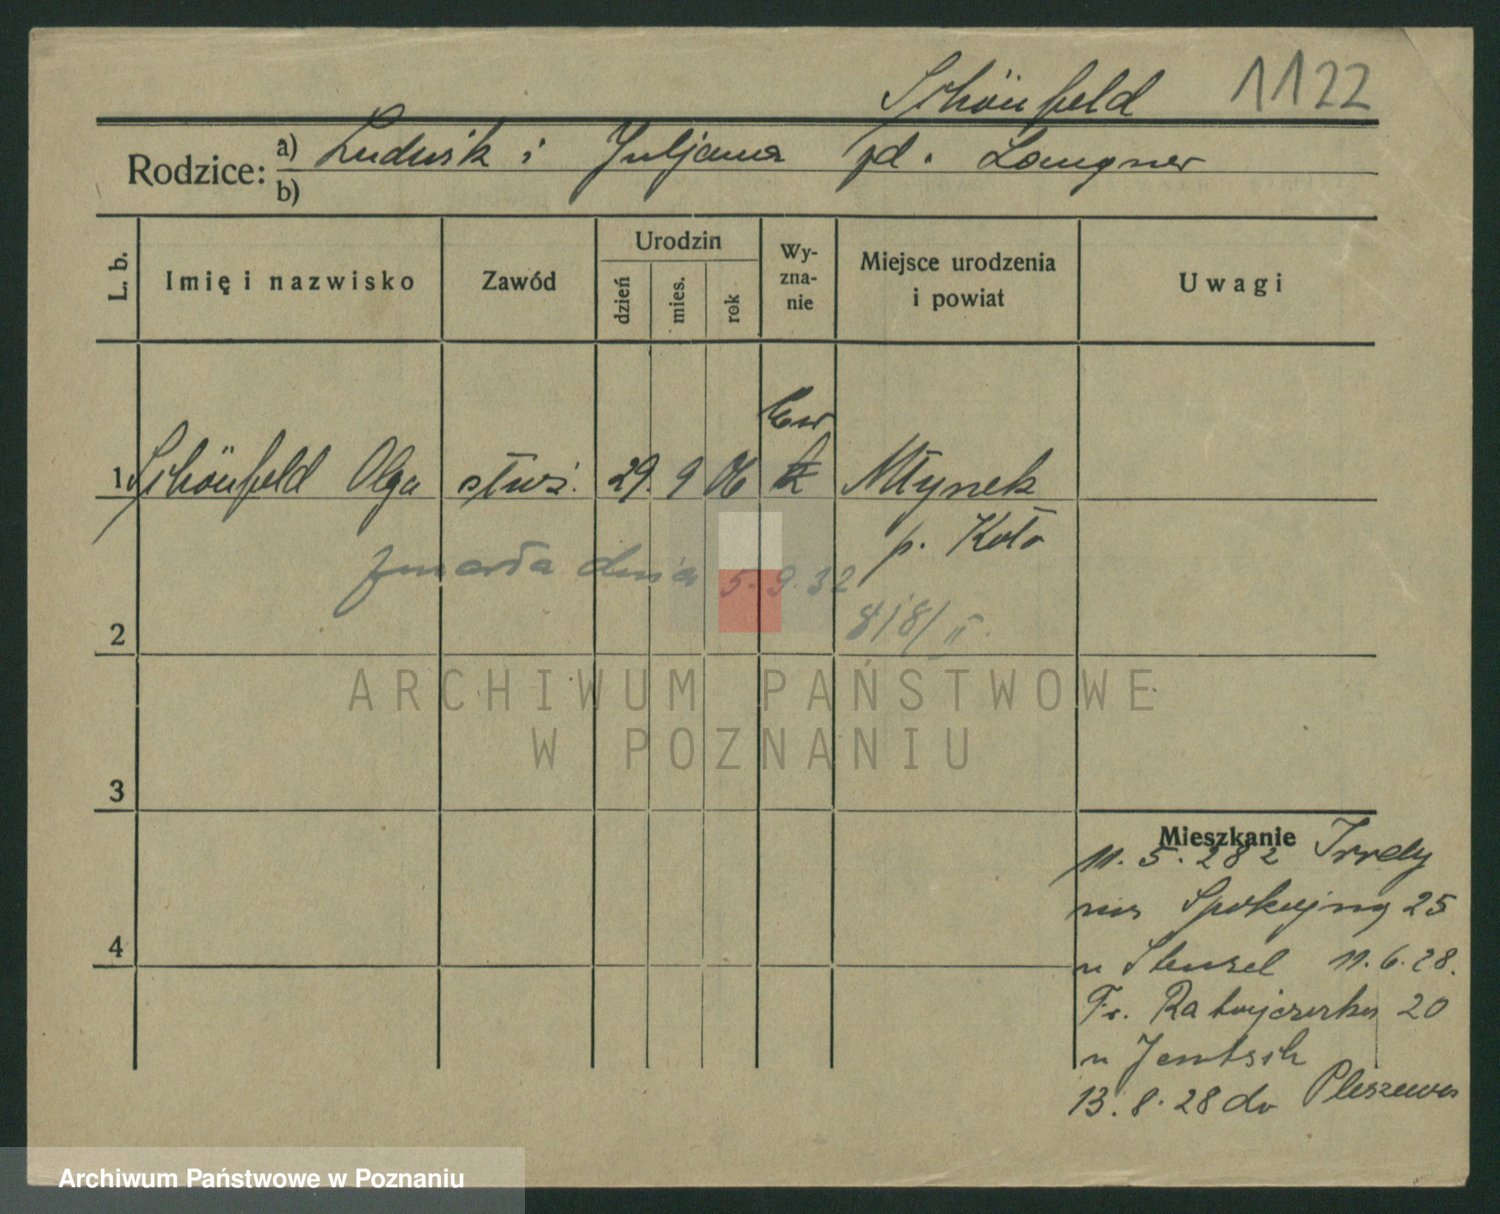 Schönfeld 1122
Rodzice: a) Ludwik i Juljana zd. Langner
b)
L. b. Imię i nazwisko Zawód Urodzin dzień mies. rok Wy-zna-nie Miejsce urodzenia i powiat Uwagi
Ew
1 Schönfeld Olga służ. 29. 9 06 k Młynek
p. Koło
zmarła dnia 5.9.32
818/II
2
ARCHIWUM PAŃSTWOWE
W POZNANIU
3
Mieszkanie
11.5.28 z
na Spokojną 25
u Stenzel 11.6.28.
Fr. Ratajczaka 20
u Jentsch
13.8.28 do Pleszewa
4
Archiwum Państwowe w Poznaniu